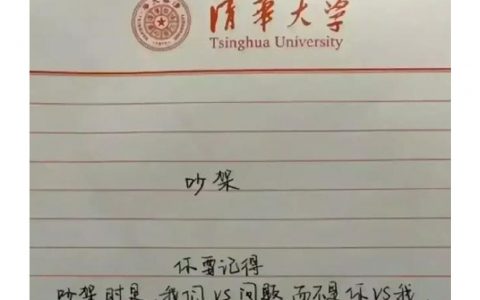 清华大学
Tsinghua University
吵架
你要记得
吵架时是 我们 VS 问题 而不是你VS我